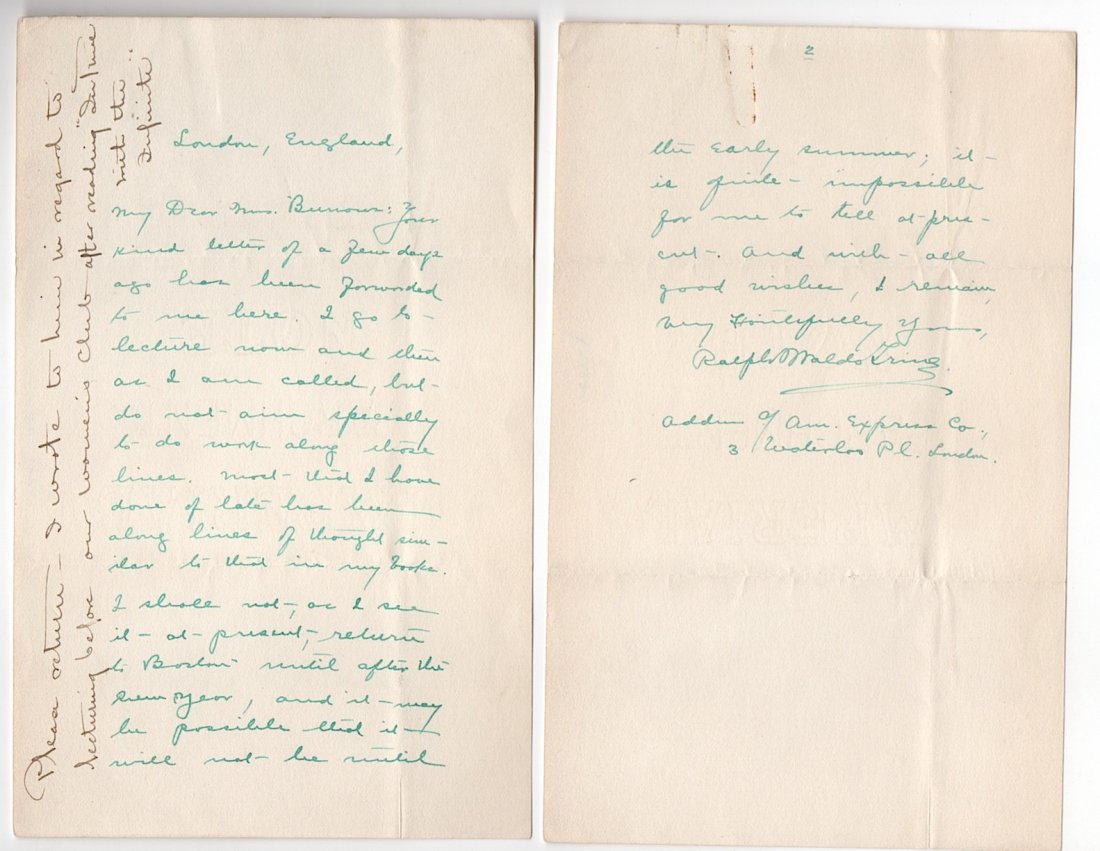 Please return — I wrote to him in regard to
lecturing before our women's club after reading "In Tune
with the
Infinite"
London, England,
My Dear Mrs. Burrows: Your
kind letter of a few days
ago has been forwarded
to me here. I go to
lecture now and then
as I am called, but
do not aim specially
to do work along those
lines. Most that I have
done of late has been
along lines of thought sim-
ilar to that in my books.
I shall not, as I see
it at present, return
to Boston until after the
new year, and it may
be possible that it
will not be until
2
the early summer; it
is quite impossible
for me to tell at pres-
ent. And with all
good wishes, I remain,
Very faithfully yours,
Ralph Waldo Trine.
Address c/o Am. Express Co.,
3 Waterloo Pl. London.